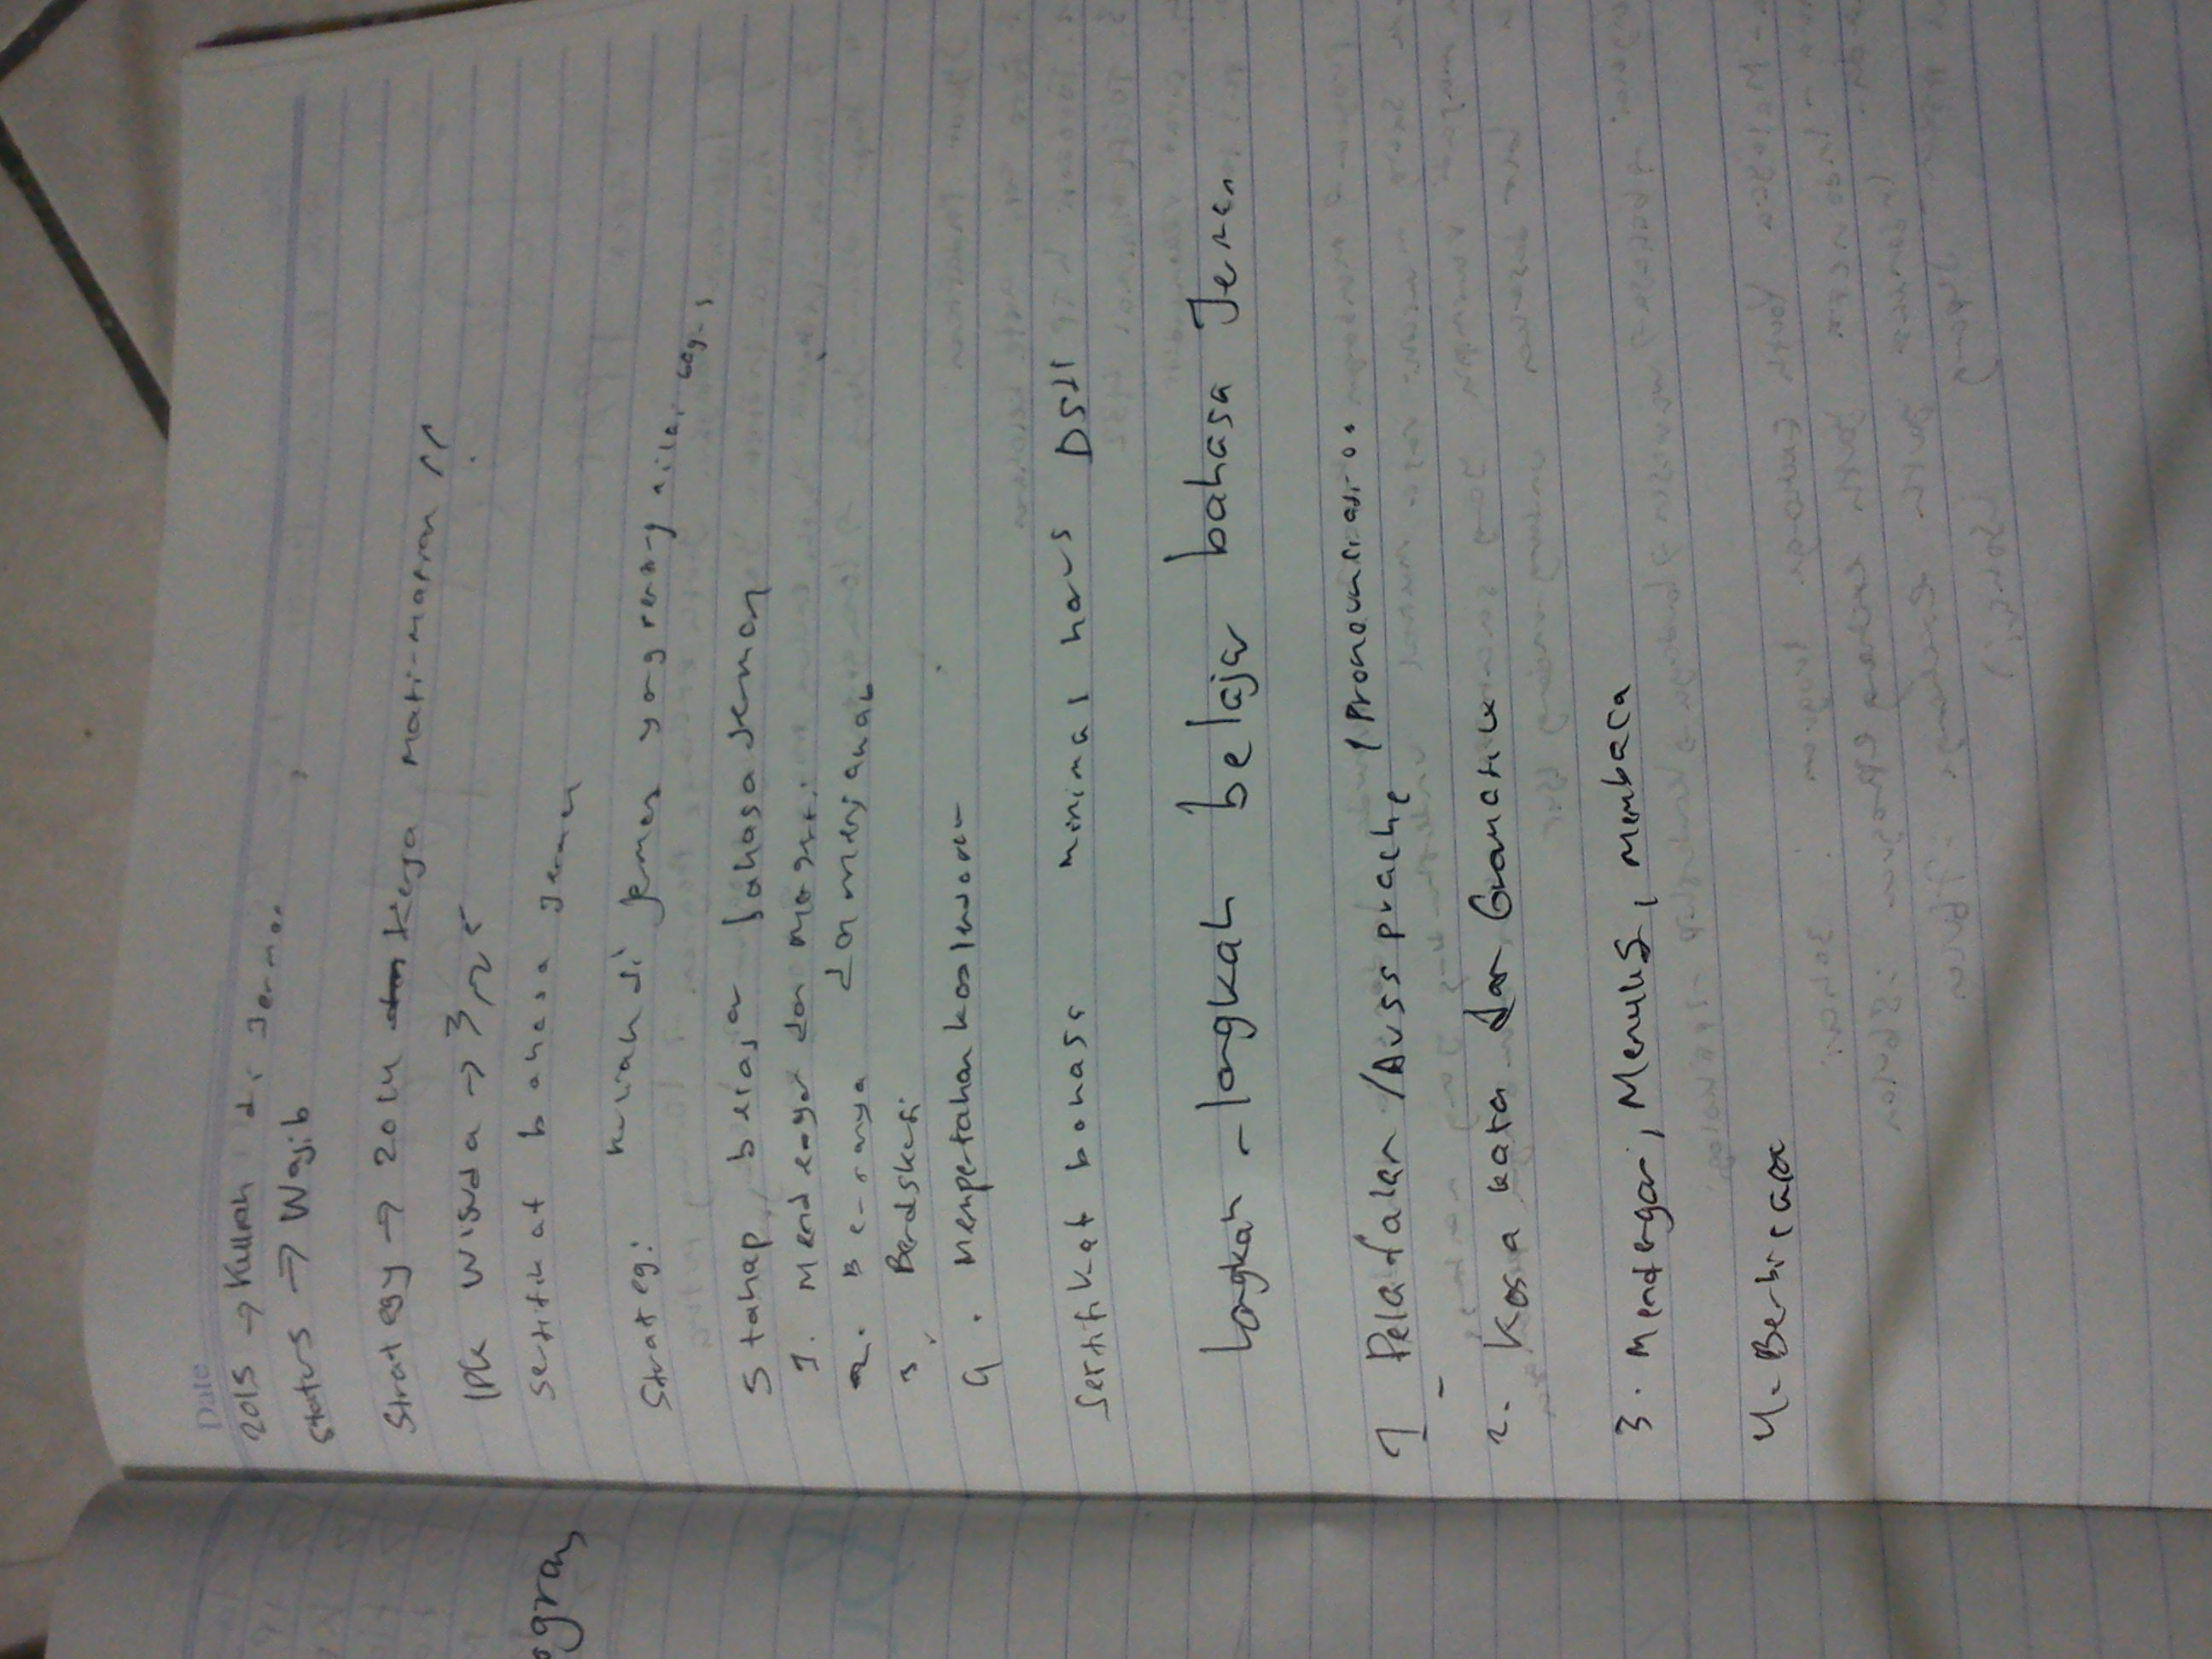 Date
2015 → Kuliah di Jerman
Status → Wajib
Strategy → 2014 Kerja mati-matian !!
IPK Wisuda → 3,25
Sertifikat bahasa Jerman
Strategi kuliah di Jerman yang penting nilai bagus
5 tahap belajar bahasa Jerman
1. Mendengar dan
2. dan menjawab
3. Berdiskusi
4. Mempertahankan
Sertifikat bahasa minimal harus DSH
Langkah-langkah belajar bahasa Jerman
1 Pelafalan /Aussprache /Pronounciation
2. Kosa kata dan Gramatik
3. Mendengar, Menulis, Membaca
4. Berbicara
ogram